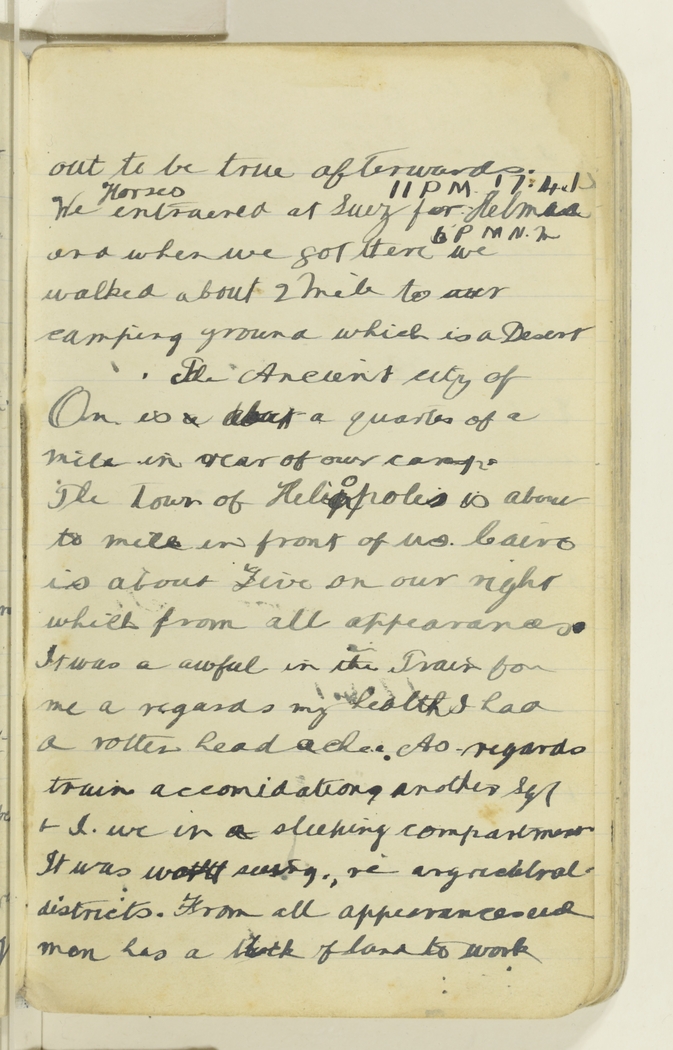 out to be true afterwards.
Horses 11 P M. 17.4.15
We entrained at Suez for Helmaa
6 P M
and when we got there we
walked about 2 mile to our
camping ground which is a Desert
The Ancient city of
On. is about a quarter of a
mile in rear of our camp.
The Town of Heliopolis is about
to mile in front of us. Cairo
is about Five on our right
which from all appearances.
It was a awful in the Train for
me a regards my health I had
a rotten head ache. As regards
train accomidationg another Sgt
& I. we in a sleeping compartment
It was worth seeing., re argricultral
districts. From all appearances
man has a block of land to work